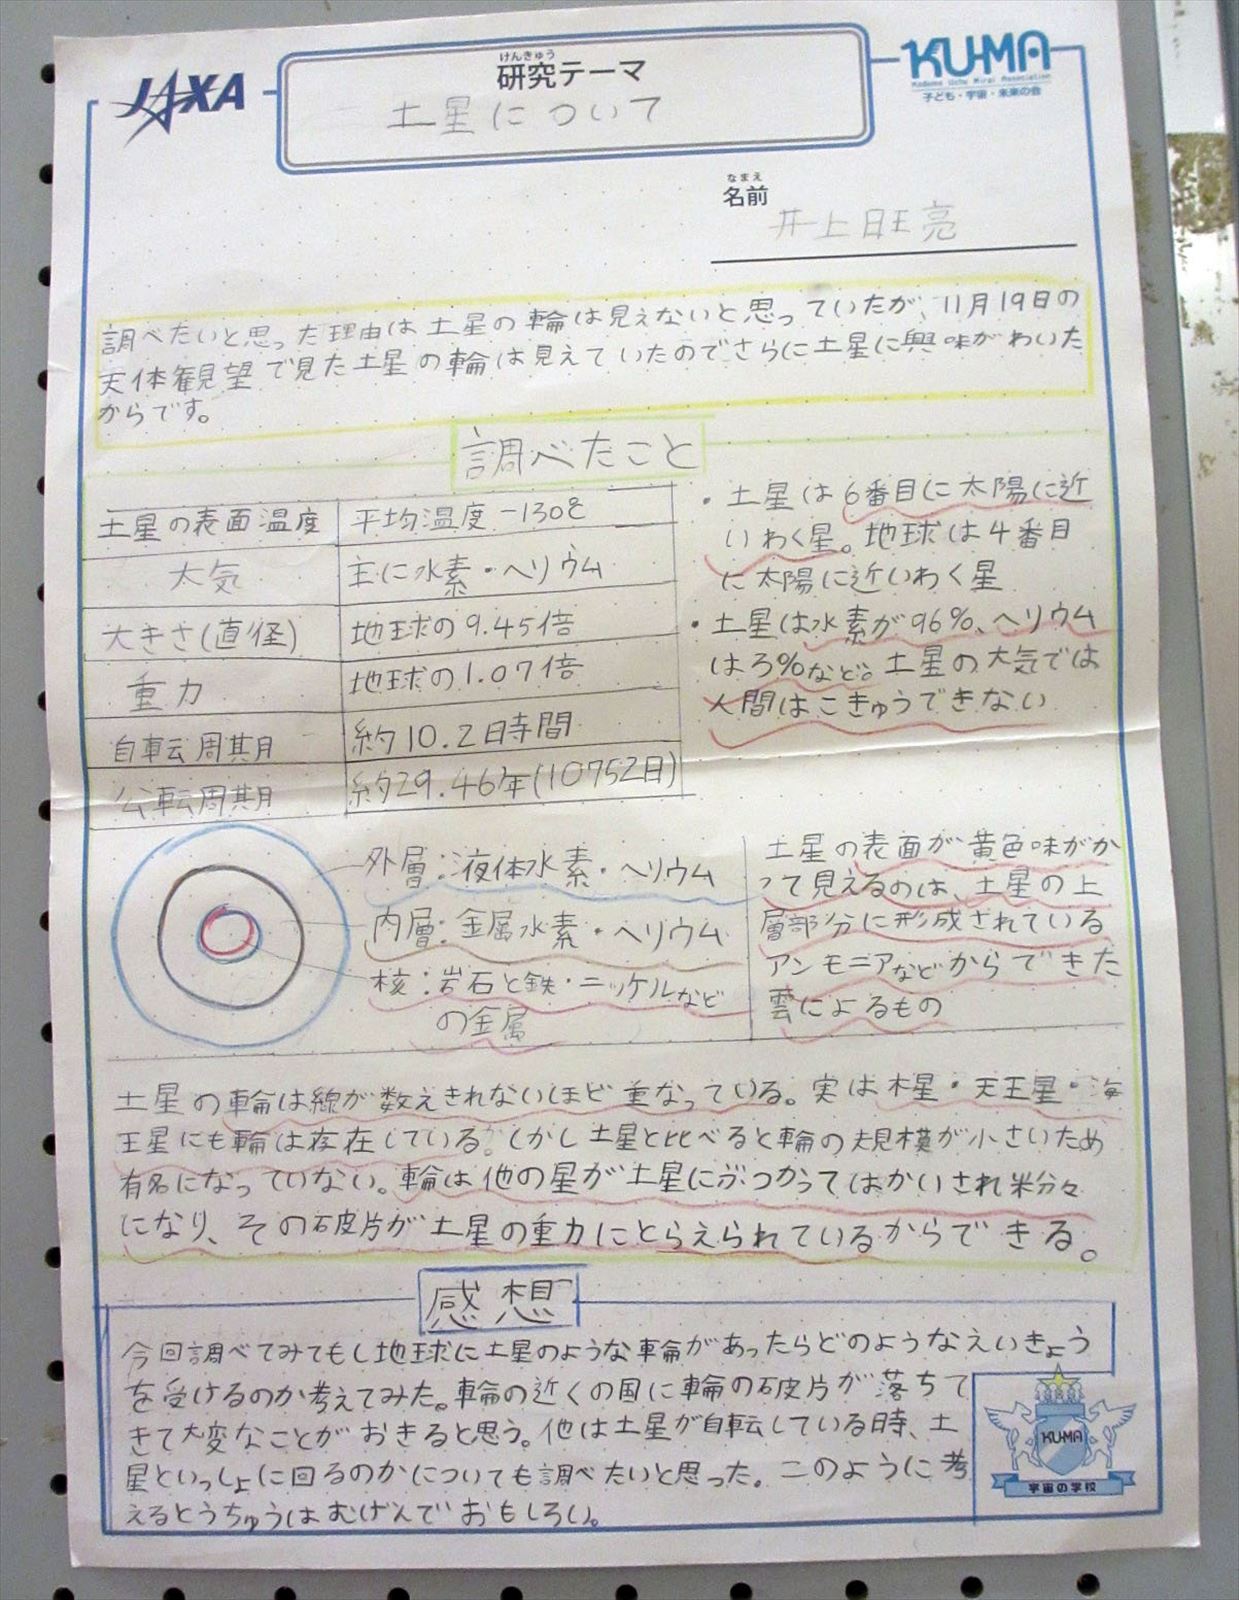 JAXA
けんきゅう
研究テーマ
土星について
KU-MA
Kodomo Uchu Mirai Association
子ども・宇宙・未来の会
なまえ
名前
井上旺亮
調べたいと思った理由は土星の輪は見えないと思っていたが、11月19日の
天体観望で見た土星の輪は見えていたのでさらに土星に興味がわいた
からです。
調べたこと
土星の表面温度 平均温度-130℃
太気 主に水素・ヘリウム
大きさ(直径) 地球の9.45倍
重力 地球の1.07倍
自転周期 約10.2時間
公転周期 約29.46年(10752日)
・土星は6番目に太陽に近
いわく星。地球は4番目
に太陽に近いわく星
・土星は水素が96%、ヘリウム
は3%など。土星の大気では
人間はこきゅうできない
外層:液体水素・ヘリウム
内層:金属水素・ヘリウム
核:岩石と鉄・ニッケルなど
の金属
土星の表面が黄色味がか
って見えるのは、土星の上
層部分に形成されている
アンモニアなどからできた
雲によるもの
土星の輪は線が数えきれないほど重なっている。実は木星・天王星・海
王星にも輪は存在している。しかし土星と比べると輪の規模が小さいため
有名になっていない。輪は他の星が土星にぶつかってはかいされ粉々
になり、その破片が土星の重力にとらえられているからできる。
感想
今回調べてみてもし地球に土星のような輪があったらどのようなえいきょう
を受けるのか考えてみた。輪の近くの国に輪の破片が落ちて
きて大変なことがおきると思う。他は土星が自転している時、土
星といっしょに回るのかについても調べたいと思った。このように考
えるとうちゅうはむげんでおもしろい。
KU-MA
宇宙の学校